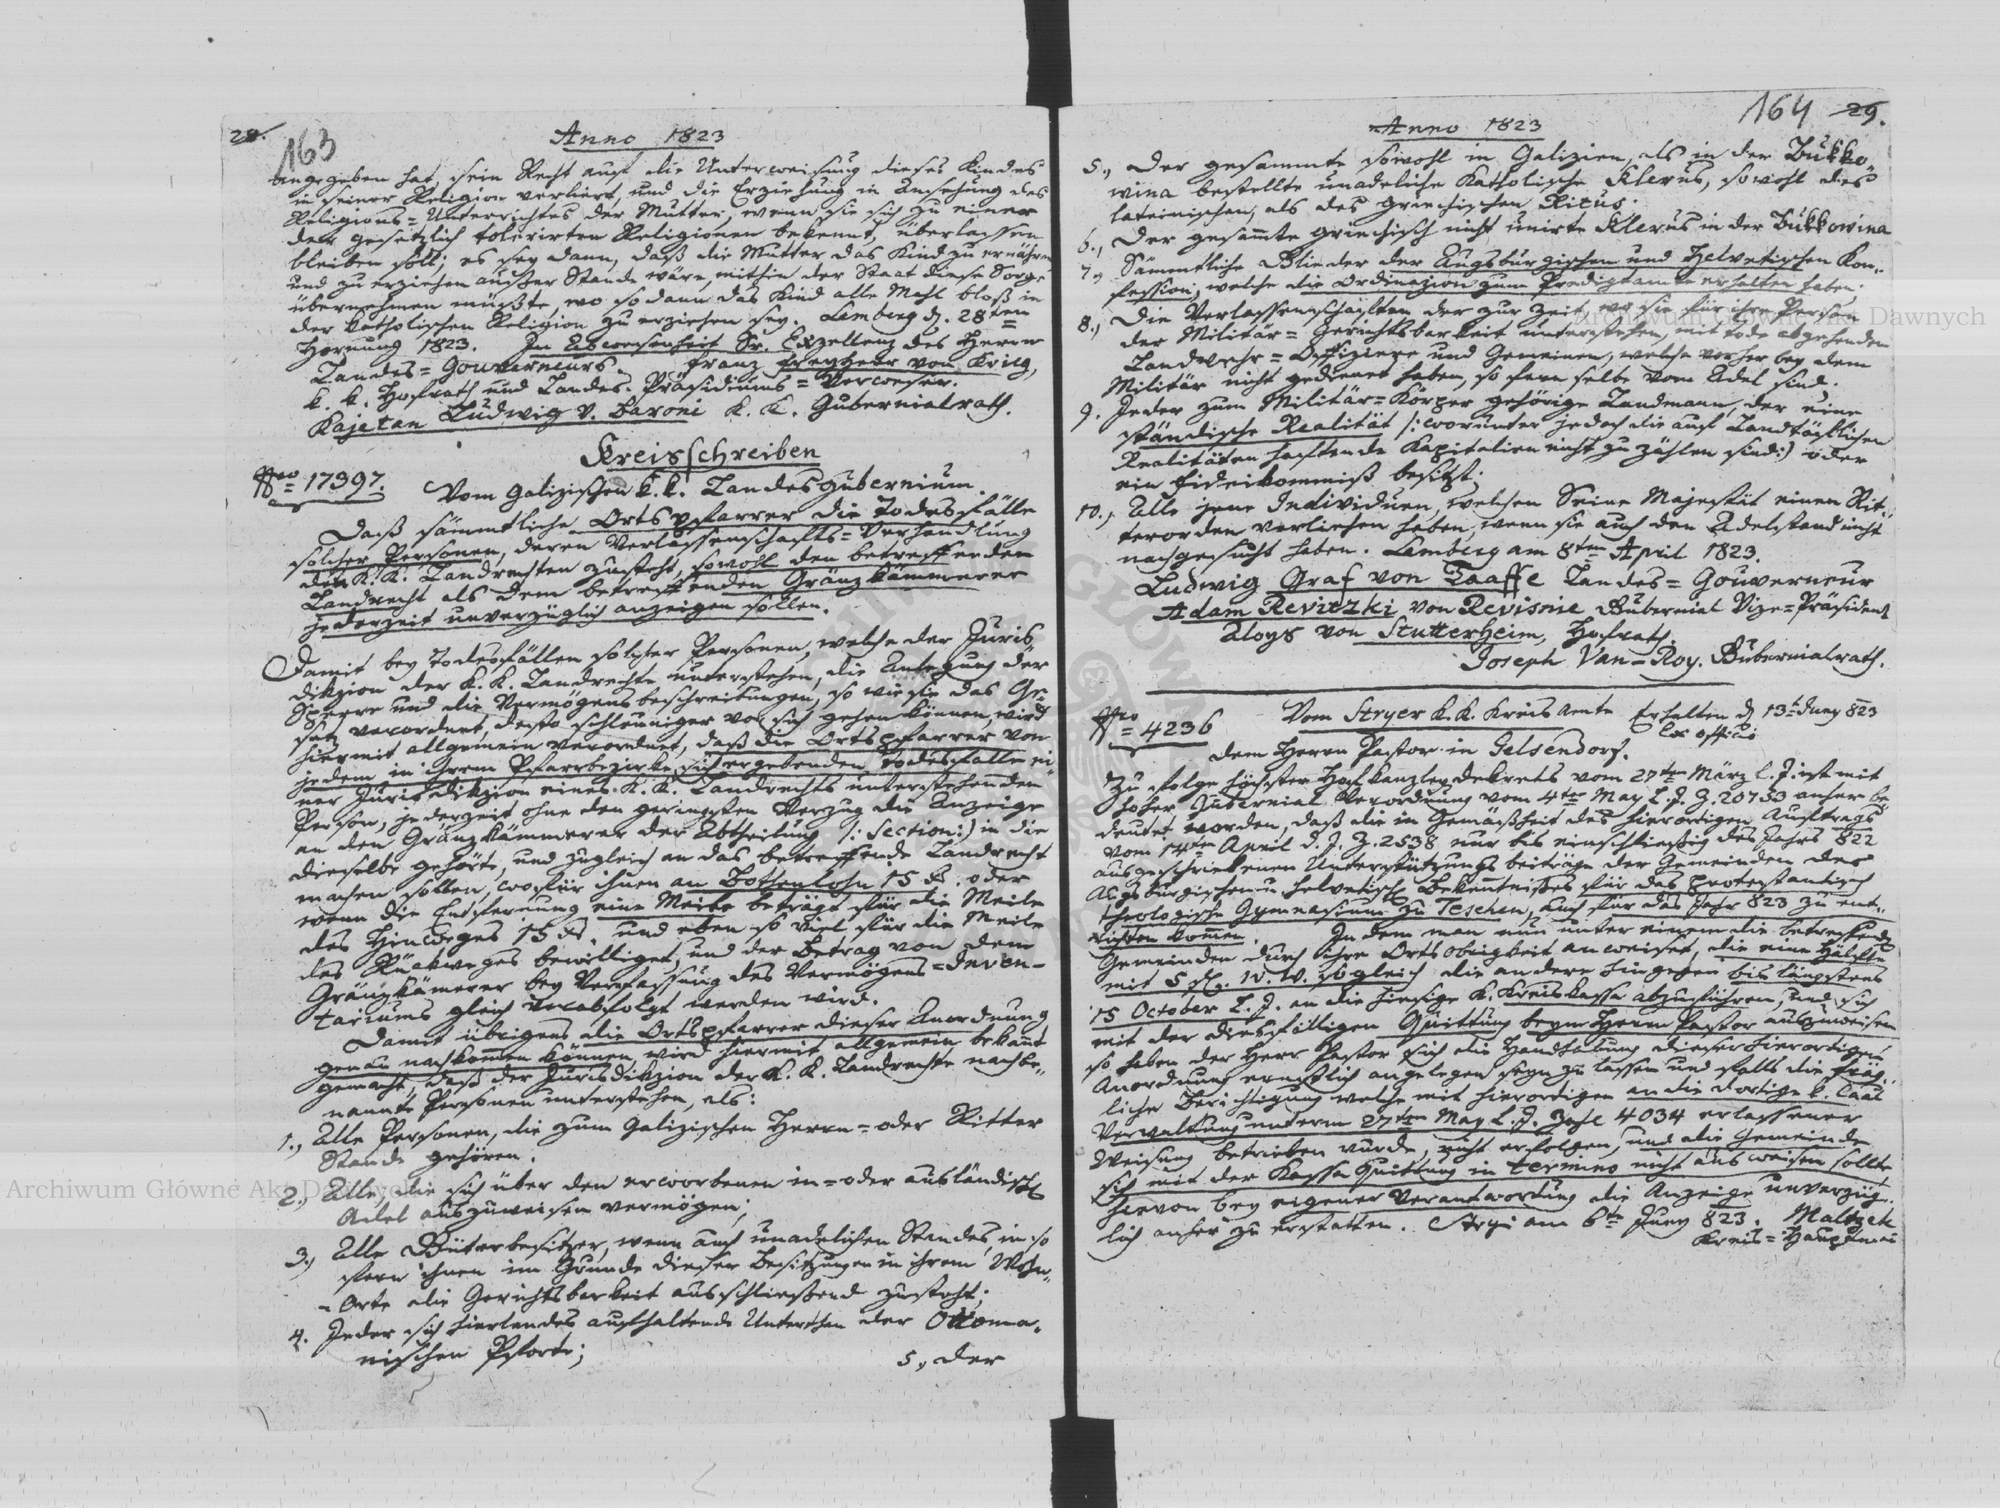 28.
163
Anno 1823
angegeben hat, sein Recht auf die Unterweisung dieses Kindes
in seiner Religion verliert, und die Erziehung in Ansehung des
Religions=Unterrichtes der Mutter, wenn sie sich zu einer
der gesetzlich tolerirten Religionen bekennt, überlassen
bleiben soll; es sey dann, daß die Mutter das Kind zu ernähren
und zu erziehen außer Stande wäre, mithin der Staat diese Sorge
übernehmen müßte, wo so dann das Kind alle Mahl bloß in
der katholischen Religion zu erziehen sey. Lemberg d. 28ten
Hornung 1823. In Abwesenheit Sr. Exzellenz des Herrn
Landes=Gouverneurs. Franz Freyherr von Krieg,
k. k. Hofrath und Landes=Präsidiums=Verweser.
Kajetan Ludwig v. Baroni K. K. Gubernialrath.
Kreisschreiben
Nro 17397.
Vom Galizischen k. k. Landesgubernium.
Daß sämmtliche Ortspfarrer die Todesfälle
solcher Personen, deren Verlassenschafts=Verhandlung
den K. K. Landrechten zusteht, sowohl den betreffenden
Landrecht als dem betreffenden Gränzkämmerer
jederzeit unverzüglich anzeigen sollen.
Damit bey Todesfällen solcher Personen, welche der Juris
dikzion der K. K. Landrechte unterstehen, die Anlegung der
Sperre und die Vermögensbeschreibungen, so wie sie das Ge,
setz verordnet, desto schleuniger vor sich gehen können, wird
hiermit allgemein verordnet, daß die Ortspfarrer von
jedem in ihrem Pfarrbezirke sich ergebenden Todesfalle ei
ner Jurisdikzion eines K. K. Landrechts unterstehenden
Person, jederzeit ohne den geringsten Verzug die Anzeige
an den Gränzkämmerer der Abtheilung /: Section :/ in die
dieselbe gehört, und zugleich an das betreffende Landrecht
machen sollen, wofür ihnen an Bothenlohn 15 x. oder
wenn die Entfernung eine Meile beträgt für die Meile
des Hinweges 15 x. und eben so viel für die Meile
des Rückweges bewilliget, und der Betrag von dem
Gränzkämerer bey Verfassung des Vermögens=Inven-
tariums gleich verabfolgt werden wird.
Damit übrigens die Ortspfarrer dieser Anordnung
genau nachkommen können, wird hiermit allgemein bekannt
gemacht, daß der Jurisdikzion der K. K. Landrechte nachbe,,
nannte Personen unterstehen, als:
1., Alle Personen, die zum Galizischen Herrn=oder Ritter
Stande gehören.
2., Alle, die sich über den erworbenen in=oder ausländisch
Adel auszuweisen vermögen;
3., Alle Güterbesitzer, wenn auch unadelichen Standes, in so
fern ihnen im Grunde dieser Besitzungen in ihrem Wohn,,
=Orte die Gerichtsbarkeit ausschließend zusteht;
4. Jeder sich hierlandes aufhaltende Unterthan der Ottoma,
nischen Pforte;
5., der
164
29.
Anno 1823
5., Der gesammte sowohl in Galizien, als in der Bukko,
wina bestellte unadeliche Katholische Klerus, sowohl des
lateinischen, als des griechischen Ritus.
6., Der gesammte griechisch nicht unirte Klerus in der Bukkowina
7., Sämmtliche Glieder der Augsburgischen und Helvetischen Kon,,
fession, welche die Ordinazion zum Predigtamte erhalten haben.
8., Die Verlassenschaften der zur Zeit, wo sie für ihre Person
der Militär=Gerichtsbarkeit unterstehen, mit tode abgehenden
Landwehr=Offiziere und Gemeinen, welche vorher bey dem
Militär nicht gedienet haben, so fern selbe vom Adel sind.
9. Jeder zum Militär=Körper gehörige Landmann, der eine
ständische Realität /: worunter jedoch die auf Landtäflichen
Realitäten haftende Kapitalien nicht zu zählen sind :/ oder
ein Fideikommiß besitzt;
10., Alle jene Individuen, welchen Seine Majestät einen Rit,,
terorden verliehen haben, wenn sie auch den Adelstand nicht
nachgesucht haben. Lemberg am 8ten April 1823.
Ludwig Graf von Taaffe Landes=Gouverneur
Adam Revitzki von Revisnie Gubernial Vize=Präsident
Aloys von Stutterheim, Hofrath
Joseph Van=Roy. Gubernialrath.
Nro 4236
Vom Stryer K. K. Kreisamte Erhalten d 13t Juny 823
Ex officio
dem Herrn Pastor in Gelsendorf.
Zu folge höchster Hofkanzleydekrets vom 27ten März l. J. ist mit
hoher Gubernial Verordnung vom 4ten May l. J. Z. 20733 anher be,
deutet worden, daß die in Gemäßheit des hierortigen Auftrags
vom 14ten April d. J. Z. 2538 nur bis einschließig des Jahrs 822
ausgeschriebenen Unterstützungsbeiträge der Gemeinden des
Augsburgischen u. helvetisch Bekenntnißes für das protestantisch
theologische Gymnasium zu Teschen, auch für das Jahr 823 zu ent,,
richten kommen. In dem man nun unter einem die betreffende
Gemeinden durch ihre Ortsobrigkeit anweiset, die eine Hälfte
mit 5 fl. W. W. sogleich die andere hingegen bis längstens
15 October l. J. an die hiesige K. Kreiskassa abzuführen, und sich
mit der diesfälligen Quittung beym Herrn Pastor auszuweisen
so haben der Herr Pastor sich die Handhabung dieser hierortigen
Anordnung ernstlich angelegen seyn zu lassen und falls die frag,,
liche Berichtigung welche mit hierortigen an die dortige k. Caal
Verwaltung unterm 27ten May l. J. Zahl 4034 erlassener
Weisung betrieben wurde, nicht erfolgen, und die Gemeinde
sich mit der Kassa Quittung in termino nicht ausweisen sollte
hievon bey eigener Verantwortung die Anzeige unverzüg,
lich anher zu erstatten. Stryi am 6ten Juny 823. Maltzek
Kreis=Hauptmann
Archiwum Główne Akt Dawnych
Archiwum Główne Akt Dawnych